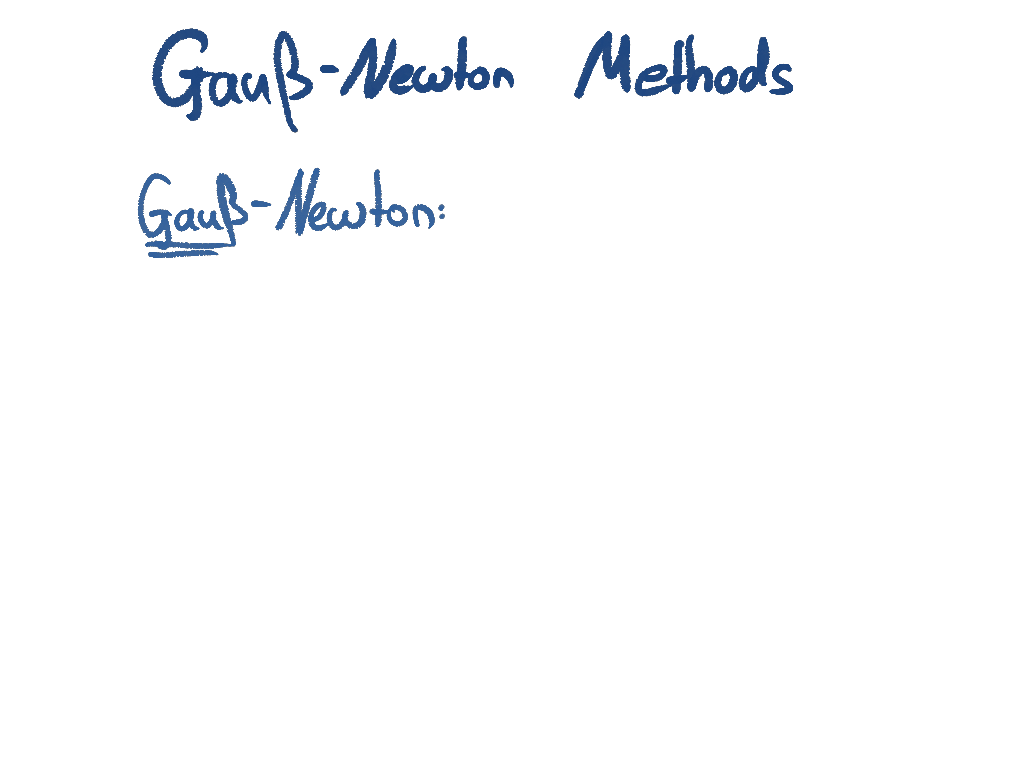 Gauß-Newton Methods
Gauß-Newton: